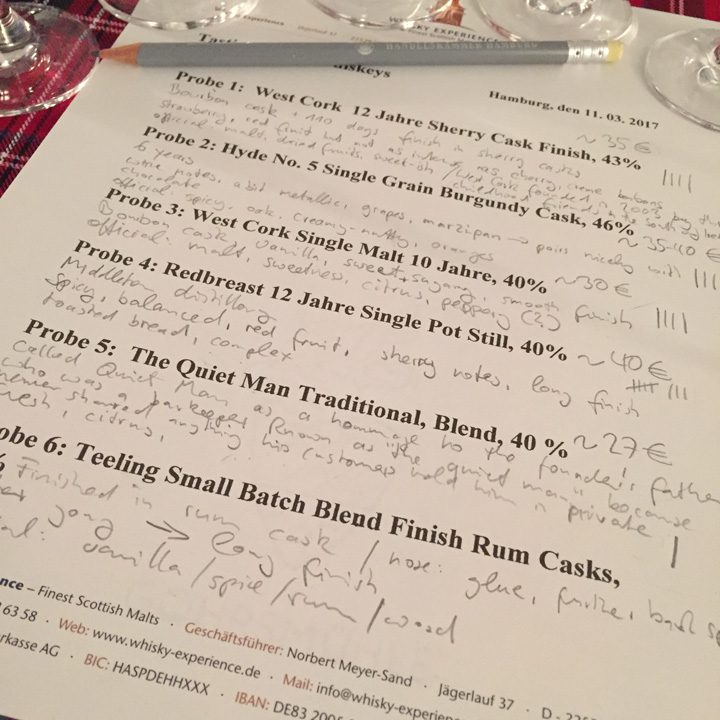 HANDELSKAMMER HAMBURG
WHISKY EXPERIENCE
Hamburg, den 11. 03. 2017
Probe 1: West Cork 12 Jahre Sherry Cask Finish, 43% ~35€
Bourbon cask, 110 days finish in sherry casks
strawberry, red fruit but not as intense as cherry, creme
official: malt, dried fruits, sweet-ish / West Cork founded in 2003 by
childhood friends ||||
Probe 2: Hyde No. 5 Single Grain Burgundy Cask, 46% ~35-40 €
6 years
wine notes, a bit metallic, grapes, marzipan → pairs nicely with
chocolate |||
official: spicy, oak, creamy-nutty, oranges
Probe 3: West Cork Single Malt 10 Jahre, 40% ~30€
Bourbon cask, vanilla, sweet, smooth finish
official: malt, sweetness, citrus, peppery (?) ||||
Probe 4: Redbreast 12 Jahre Single Pot Still, 40% ~40€
Middleton distillery
spicy, balanced, red fruit, sherry notes, long finish
toasted bread, complex
Probe 5: The Quiet Man Traditional, Blend, 40 % ~27€
Called Quiet Man as a hommage to the founder's father
who was a barkeeper known as "the quiet man" because
never shared anything his customers told him in private |
fresh, citrus,
obe 6: Teeling Small Batch Blend Finish Rum Casks,
Finished in rum cask / nose: glue,
→ long finish
vanilla / spice / rum / wood
nce – Finest Scottish Malts · Geschäftsführer: Norbert Meyer-Sand · Jägerlauf 37 · D -
63 58 · Web: www.whisky-experience.de · Mail: info@whisky-experien
rkasse AG · BIC: HASPDEHHXXX · IBAN: DE83 200